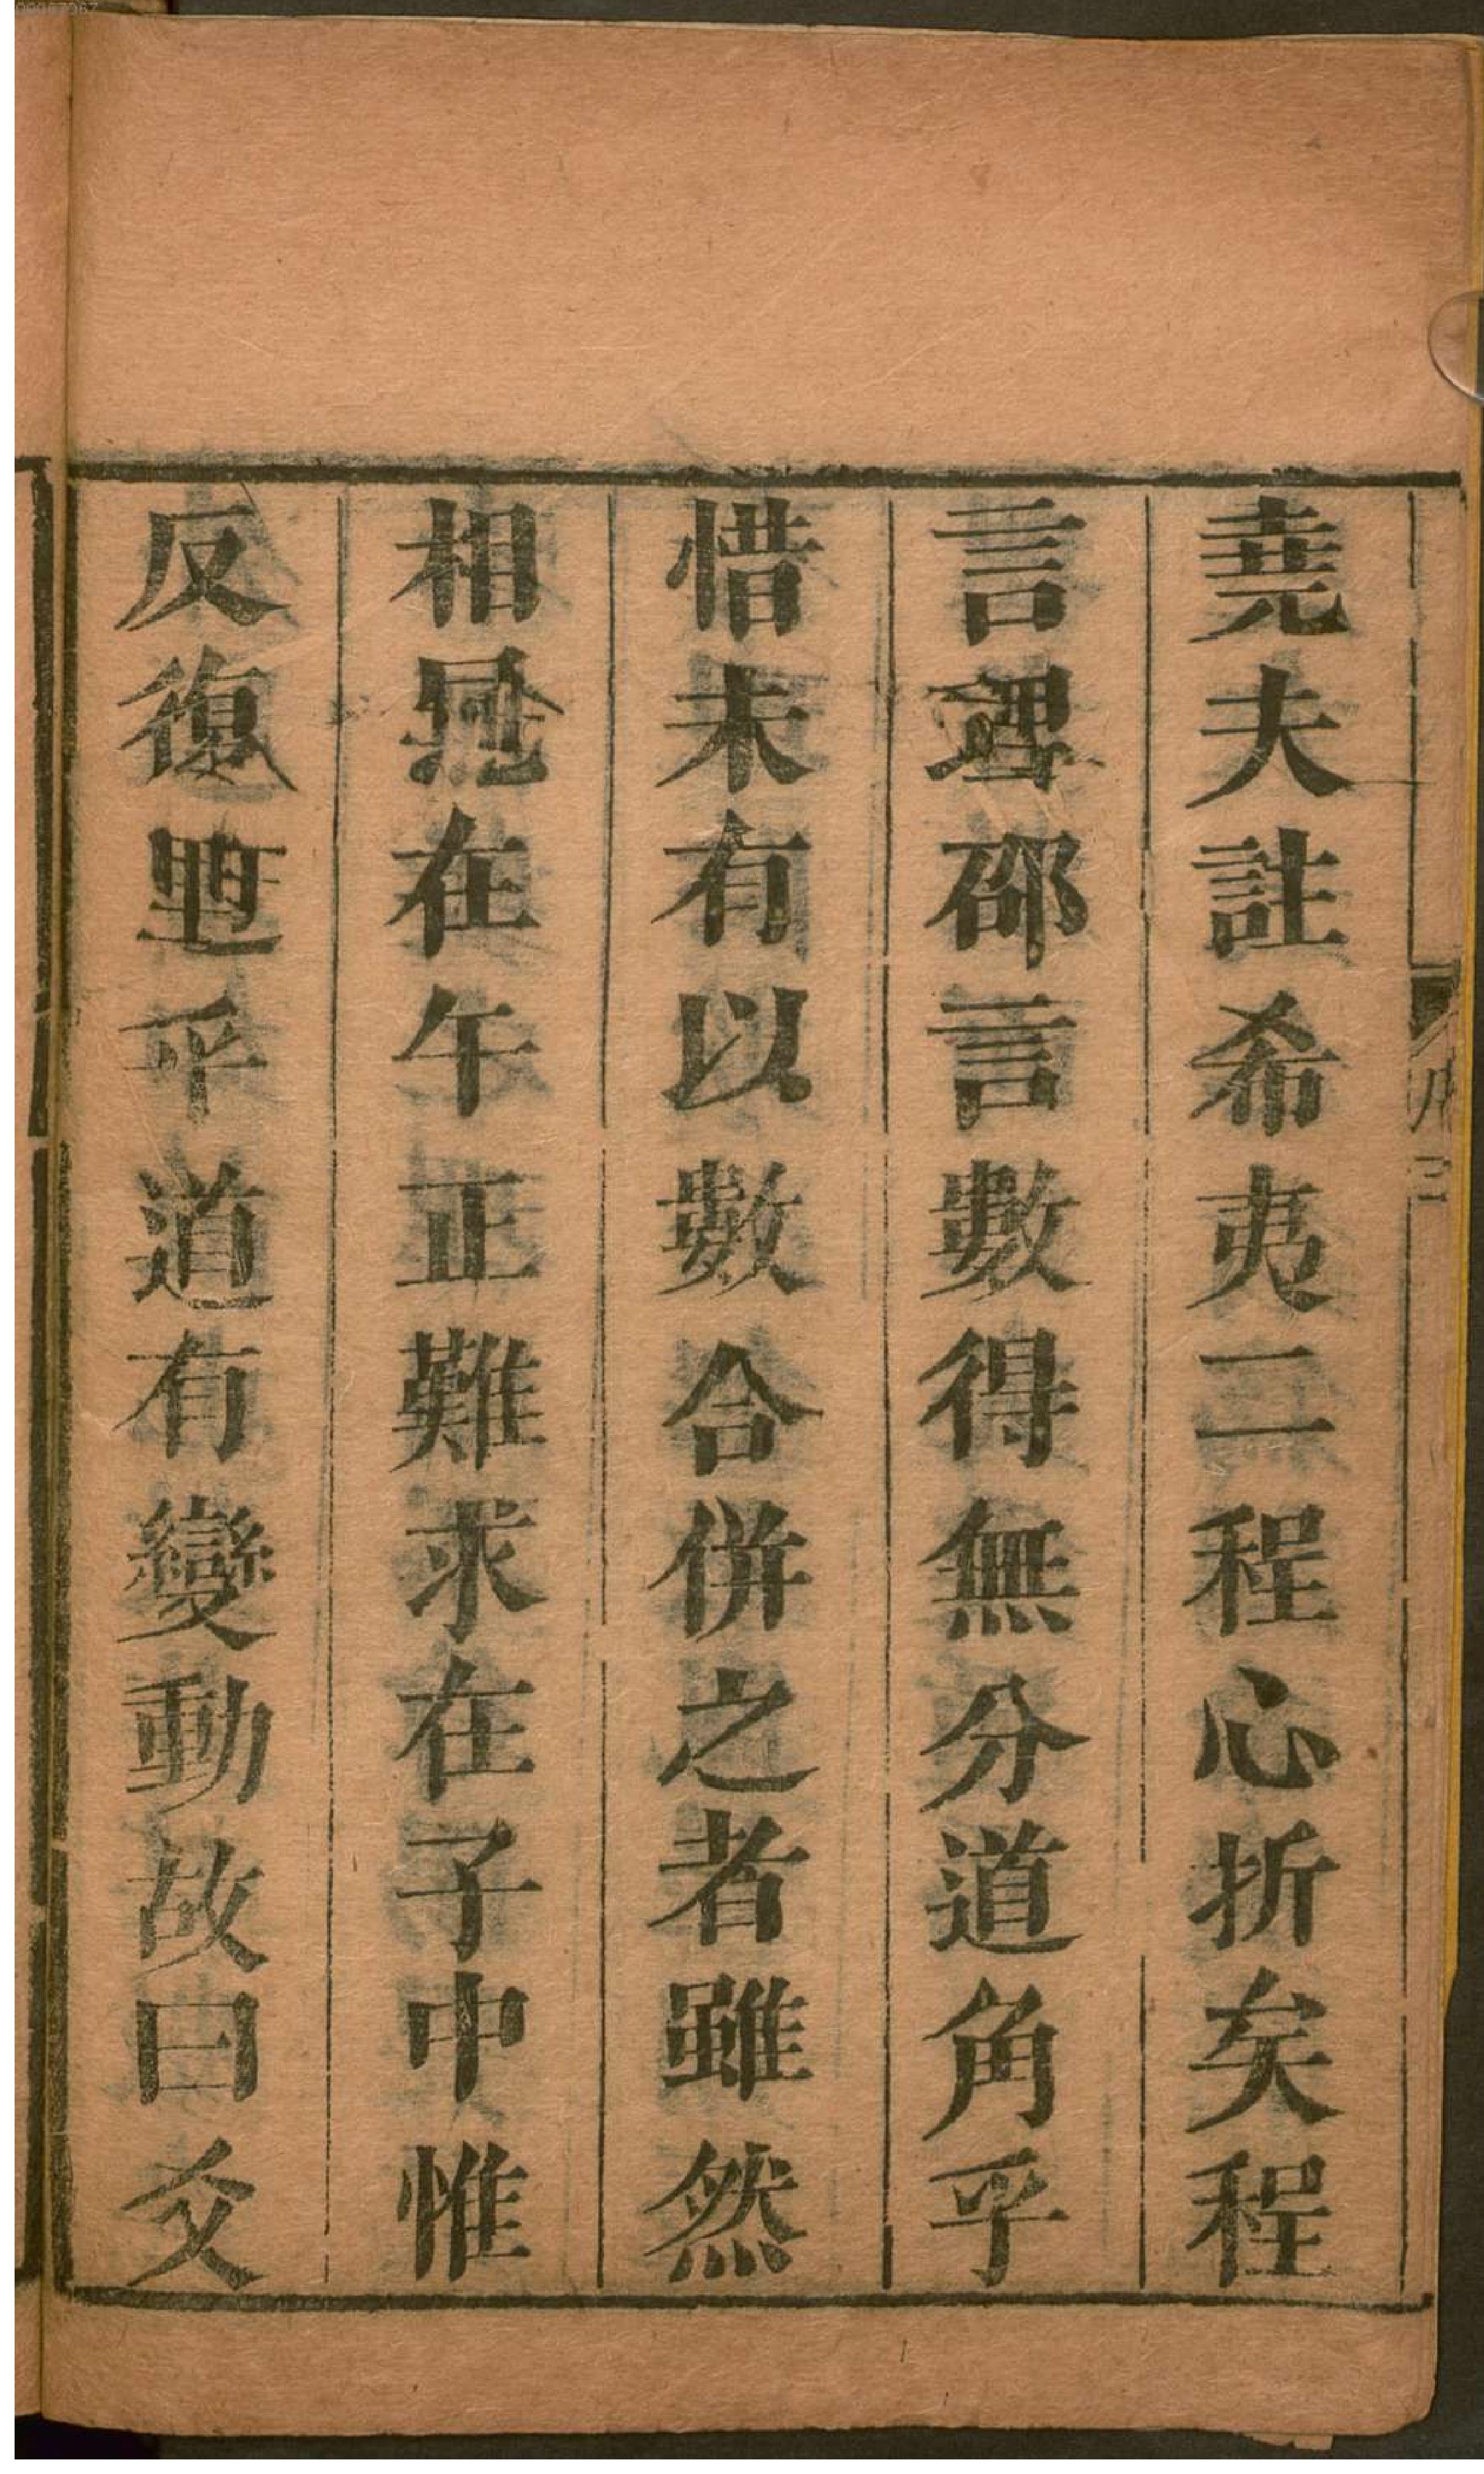 堯夫註希夷二程心折矣程
言理邵言數得無分道角乎
惜未有以數合併之者雖然
相在午正難求在子中惟
反復乎道有變動故曰爻
序 三